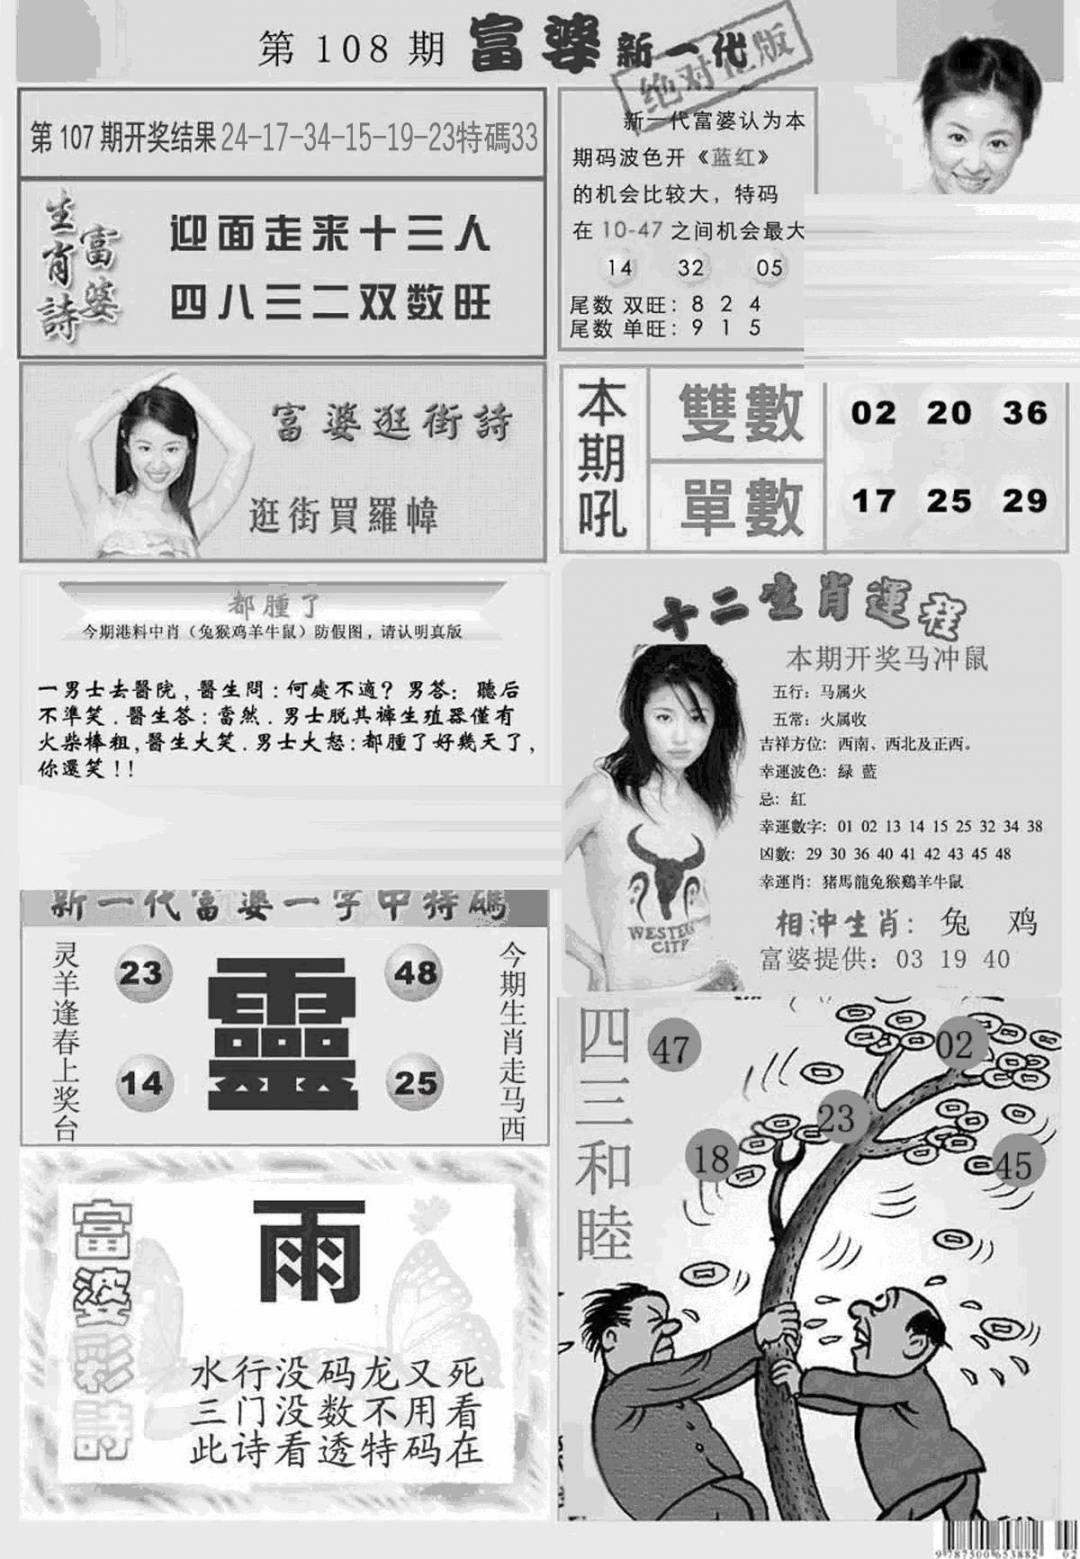 第 108 期 富婆 新一代
绝对正版
第 107 期开奖结果 24-17-34-15-19-23特碼33
富婆
生肖詩
迎面走来十三人
四八三二双数旺
新一代富婆认为本
期码波色开《蓝红》
的机会比较大，特码
在 10-47 之间机会最大
14 32 05
尾数 双旺：8 2 4
尾数 单旺：9 1 5
富婆逛街詩
逛街買羅幃
本期吼
雙數 02 20 36
單數 17 25 29
都腫了
今期港料中肖（兔猴鸡羊牛鼠）防假图，请认明真版
一男士去醫院，醫生問：何處不適？男答：聽后
不準笑．醫生答：當然．男士脱其褲生殖器僅有
火柴棒粗，醫生大笑．男士大怒：都腫了好幾天了，
你還笑！！
十二生肖運程
本期开奖马冲鼠
五行：马属火
五常：火属收
吉祥方位：西南、西北及正西。
幸運波色：緑 藍
忌：紅
幸運數字：01 02 13 14 15 25 32 34 38
凶數：29 30 36 40 41 42 43 45 48
幸運肖：猪馬龍兔猴鷄羊牛鼠
相沖生肖：兔 鸡
富婆提供：03 19 40
WESTERN
CITY
新一代富婆一字中特碼
灵羊逢春上奖台
23
48
靈
14
25
今期生肖走马西
富婆彩詩
雨
水行没码龙又死
三门没数不用看
此诗看透特码在
四三和睦
47
02
23
18
45
9787500653882 02